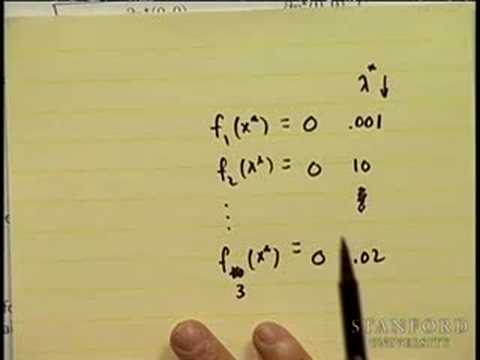 λ* ↓
f₁(x*) = 0 .001
f₂(x*) = 0 10
⋮
f₃(x*) = 0 .02
STANFORD
UNIVERSITY